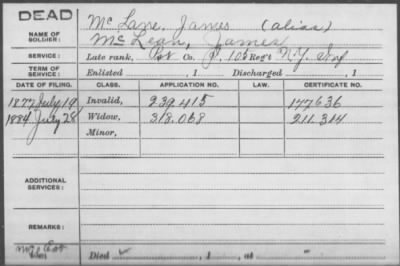 DEAD
NAME OF SOLDIER: McLane, James (alias)
McLean, James
SERVICE: Late rank, Pvt Co. P. 105 Reg't N.Y. Inf
TERM OF SERVICE: Enlisted , 1 Discharged , 1
DATE OF FILING. CLASS. APPLICATION NO. LAW. CERTIFICATE NO.
1877 July 19 Invalid, 239.415 177636
1884 July 28 Widow, 318.068 211.314
Minor,
ADDITIONAL SERVICES:
REMARKS:
Died , 1 , at